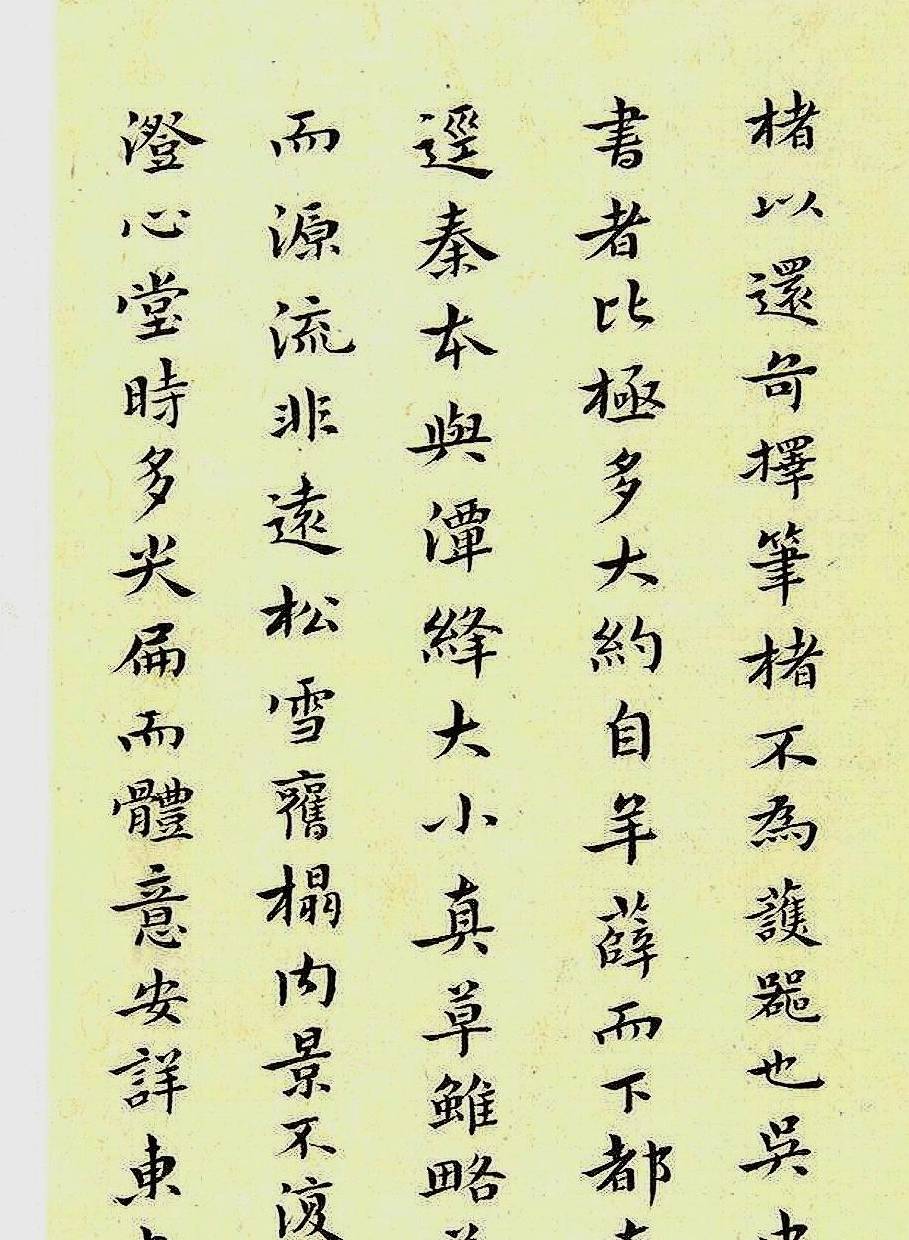 楮以還奇擇筆楮不為護器也吳中
書者比極多大約自羊薛而下都
逕秦本與潭絳大小真草雖略
而源流非遠松雪舊榻內景不復
澄心堂時多尖扁而體意安詳東